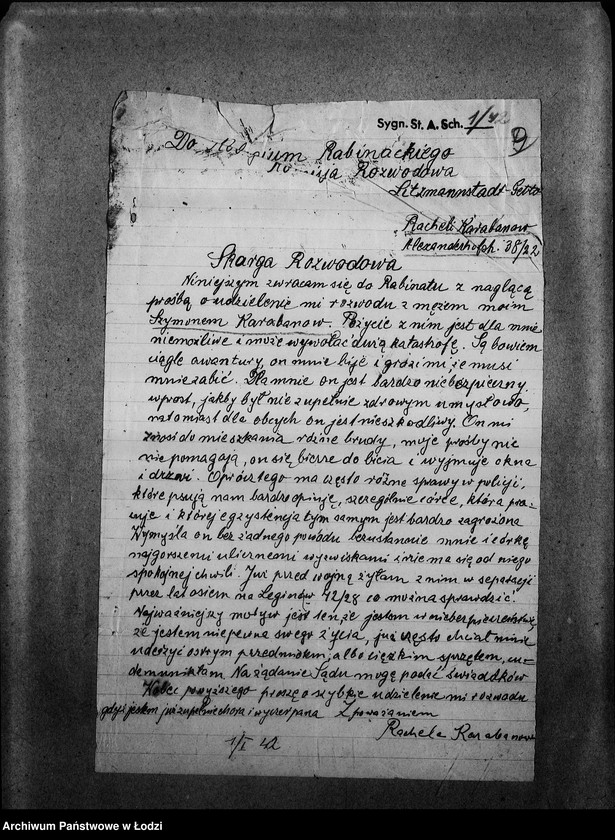 Sygn. St. A. Sch. 1/42
Do Rabinackiego
Rozwodowa
Litzmannstadt-Getto
Rachela Karabanow
Alexanderhofstr. 38/22
Skarga Rozwodowa
Niniejszym zwracam się do Rabinatu z naglącą
prośbą o udzielenie mi rozwodu z mężem moim
Szymonem Karabanow. Pożycie z nim jest dla mnie
niemożliwe i może wywołać dużą katastrofę. Są bowiem
ciągłe awantury, on mnie bije i grozi mi, że musi
mnie zabić. Dla mnie on jest bardzo niebezpieczny
wprost, jakby był niezupełnie zdrowym umysłowo,
natomiast dla obcych on jest nieszkodliwy. On mi
znosi do mieszkania różne brudy, moje prośby nic
nie pomagają, on się bierze do bicia i wyjmuje okna
i drzwi. Oprócz tego ma często różne sprawy w policji,
które psują nam bardzo opinję, szczególnie córce, która pra-
cuje i której egzystencja tym samym jest bardzo zagrożona
Wymyśla on bez żadnego powodu bezustannie mnie i córkę
najgorszemi ulicznemi wyzwiskami i nie ma się od niego
spokojnej chwili. Już przed wojną żyłam z nim w separacji
przez lat osiem na Legionów 42/28 co można sprawdzić.
Najważniejszy motyw jest ten, że jestem w niebezpieczeństwie,
że jestem niepewna swego życia, już często chciał mnie
uderzyć ostrym przedmiotem, albo ciężkim sprzętem, un-
demuniktam Na żądanie Sądu mogę podać świadków
Wobec powyższego proszę o szybkie udzielenie mi rozwodu
gdyż jestem już zupełnie chora i wyczerpana Z poważaniem
Rachela Karabanow
1/I 42
Archiwum Państwowe w Łodzi